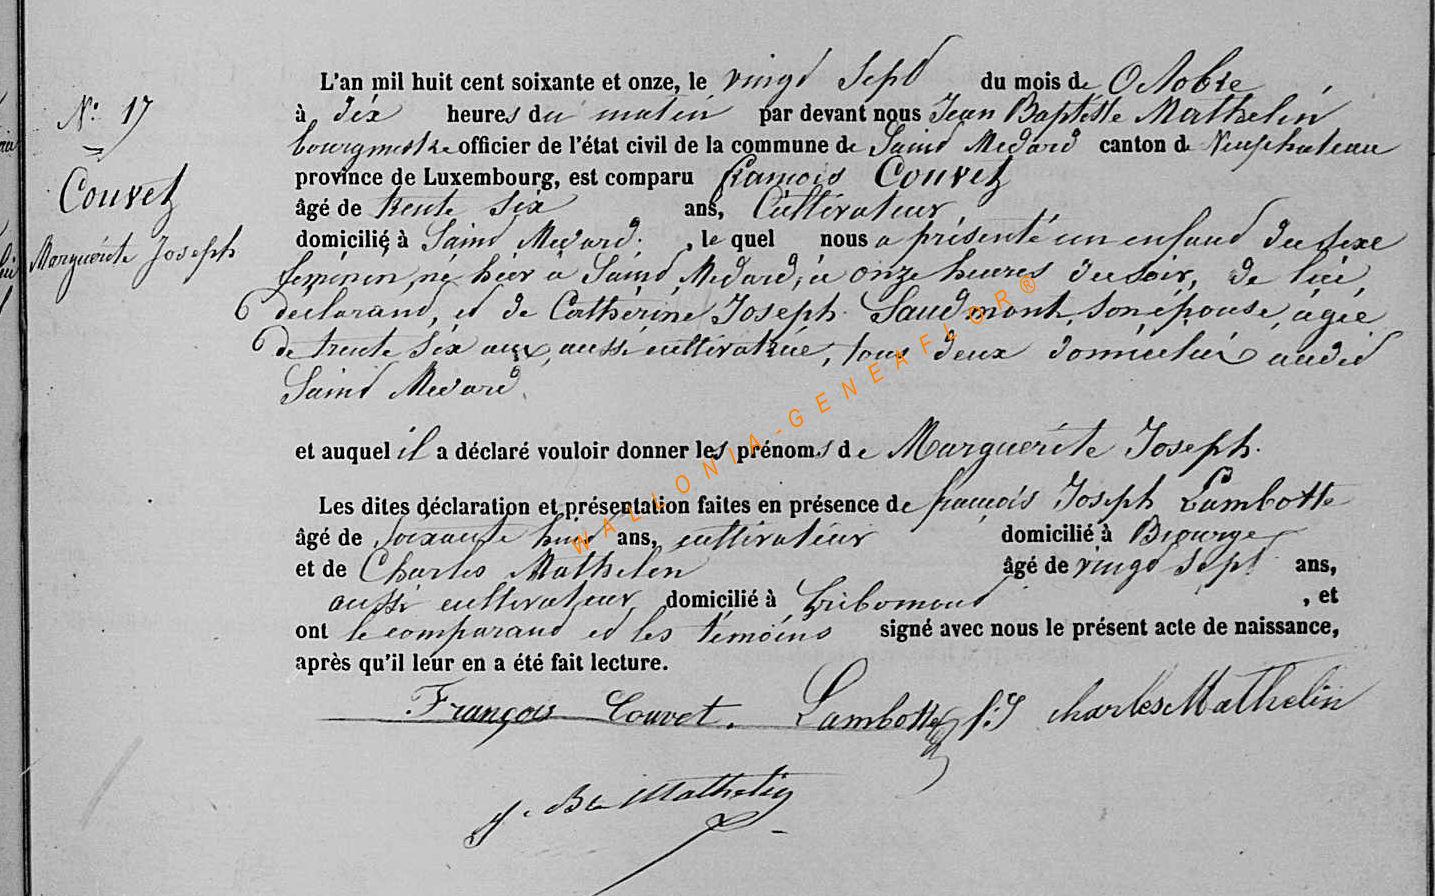 N: 17
Couvet
Marguérite Joseph
L'an mil huit cent soixante et onze, le vingt Sept du mois de Octobre
à dix heures du matin par devant nous Jean Baptiste Mathelin
bourgmestre officier de l'état civil de la commune de Saint Medard canton de Neufchateau
province de Luxembourg, est comparu François Couvet
âgé de trente six ans, Cultivateur,
domicilié à Saint Medard. , le quel nous a présenté un enfant du sexe
feminin, né hier à Saint Medard, à onze heures du soir, de lui,
declarant, et de Catherine Joseph Saudmont, son épouse, agée
de trente six ans, aussi cultivatrice, tous deux domiciliés audit
Saint Medard.
et auquel il a déclaré vouloir donner les prénoms de Marguerite Joseph.
Les dites déclaration et présentation faites en présence de françois Joseph Lambotte
âgé de soixante huit ans, cultivateur domicilié à Biourge
et de Charles Mathelin âgé de vingt sept ans,
aussi cultivateur domicilié à Gribomont , et
ont le comparant et les témoins signé avec nous le présent acte de naissance,
après qu'il leur en a été fait lecture.
François Couvet. Lambotte f: J Charles Mathelin
J. Bte Mathelin
WALLONIA-GENEAFLOR®